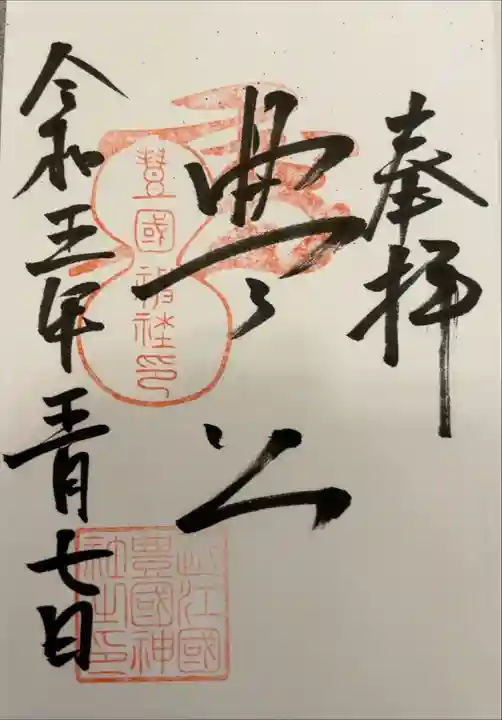 奉拝
豊公
豊國神社印
令和五年五月七日
近江國
豊國神
社之印